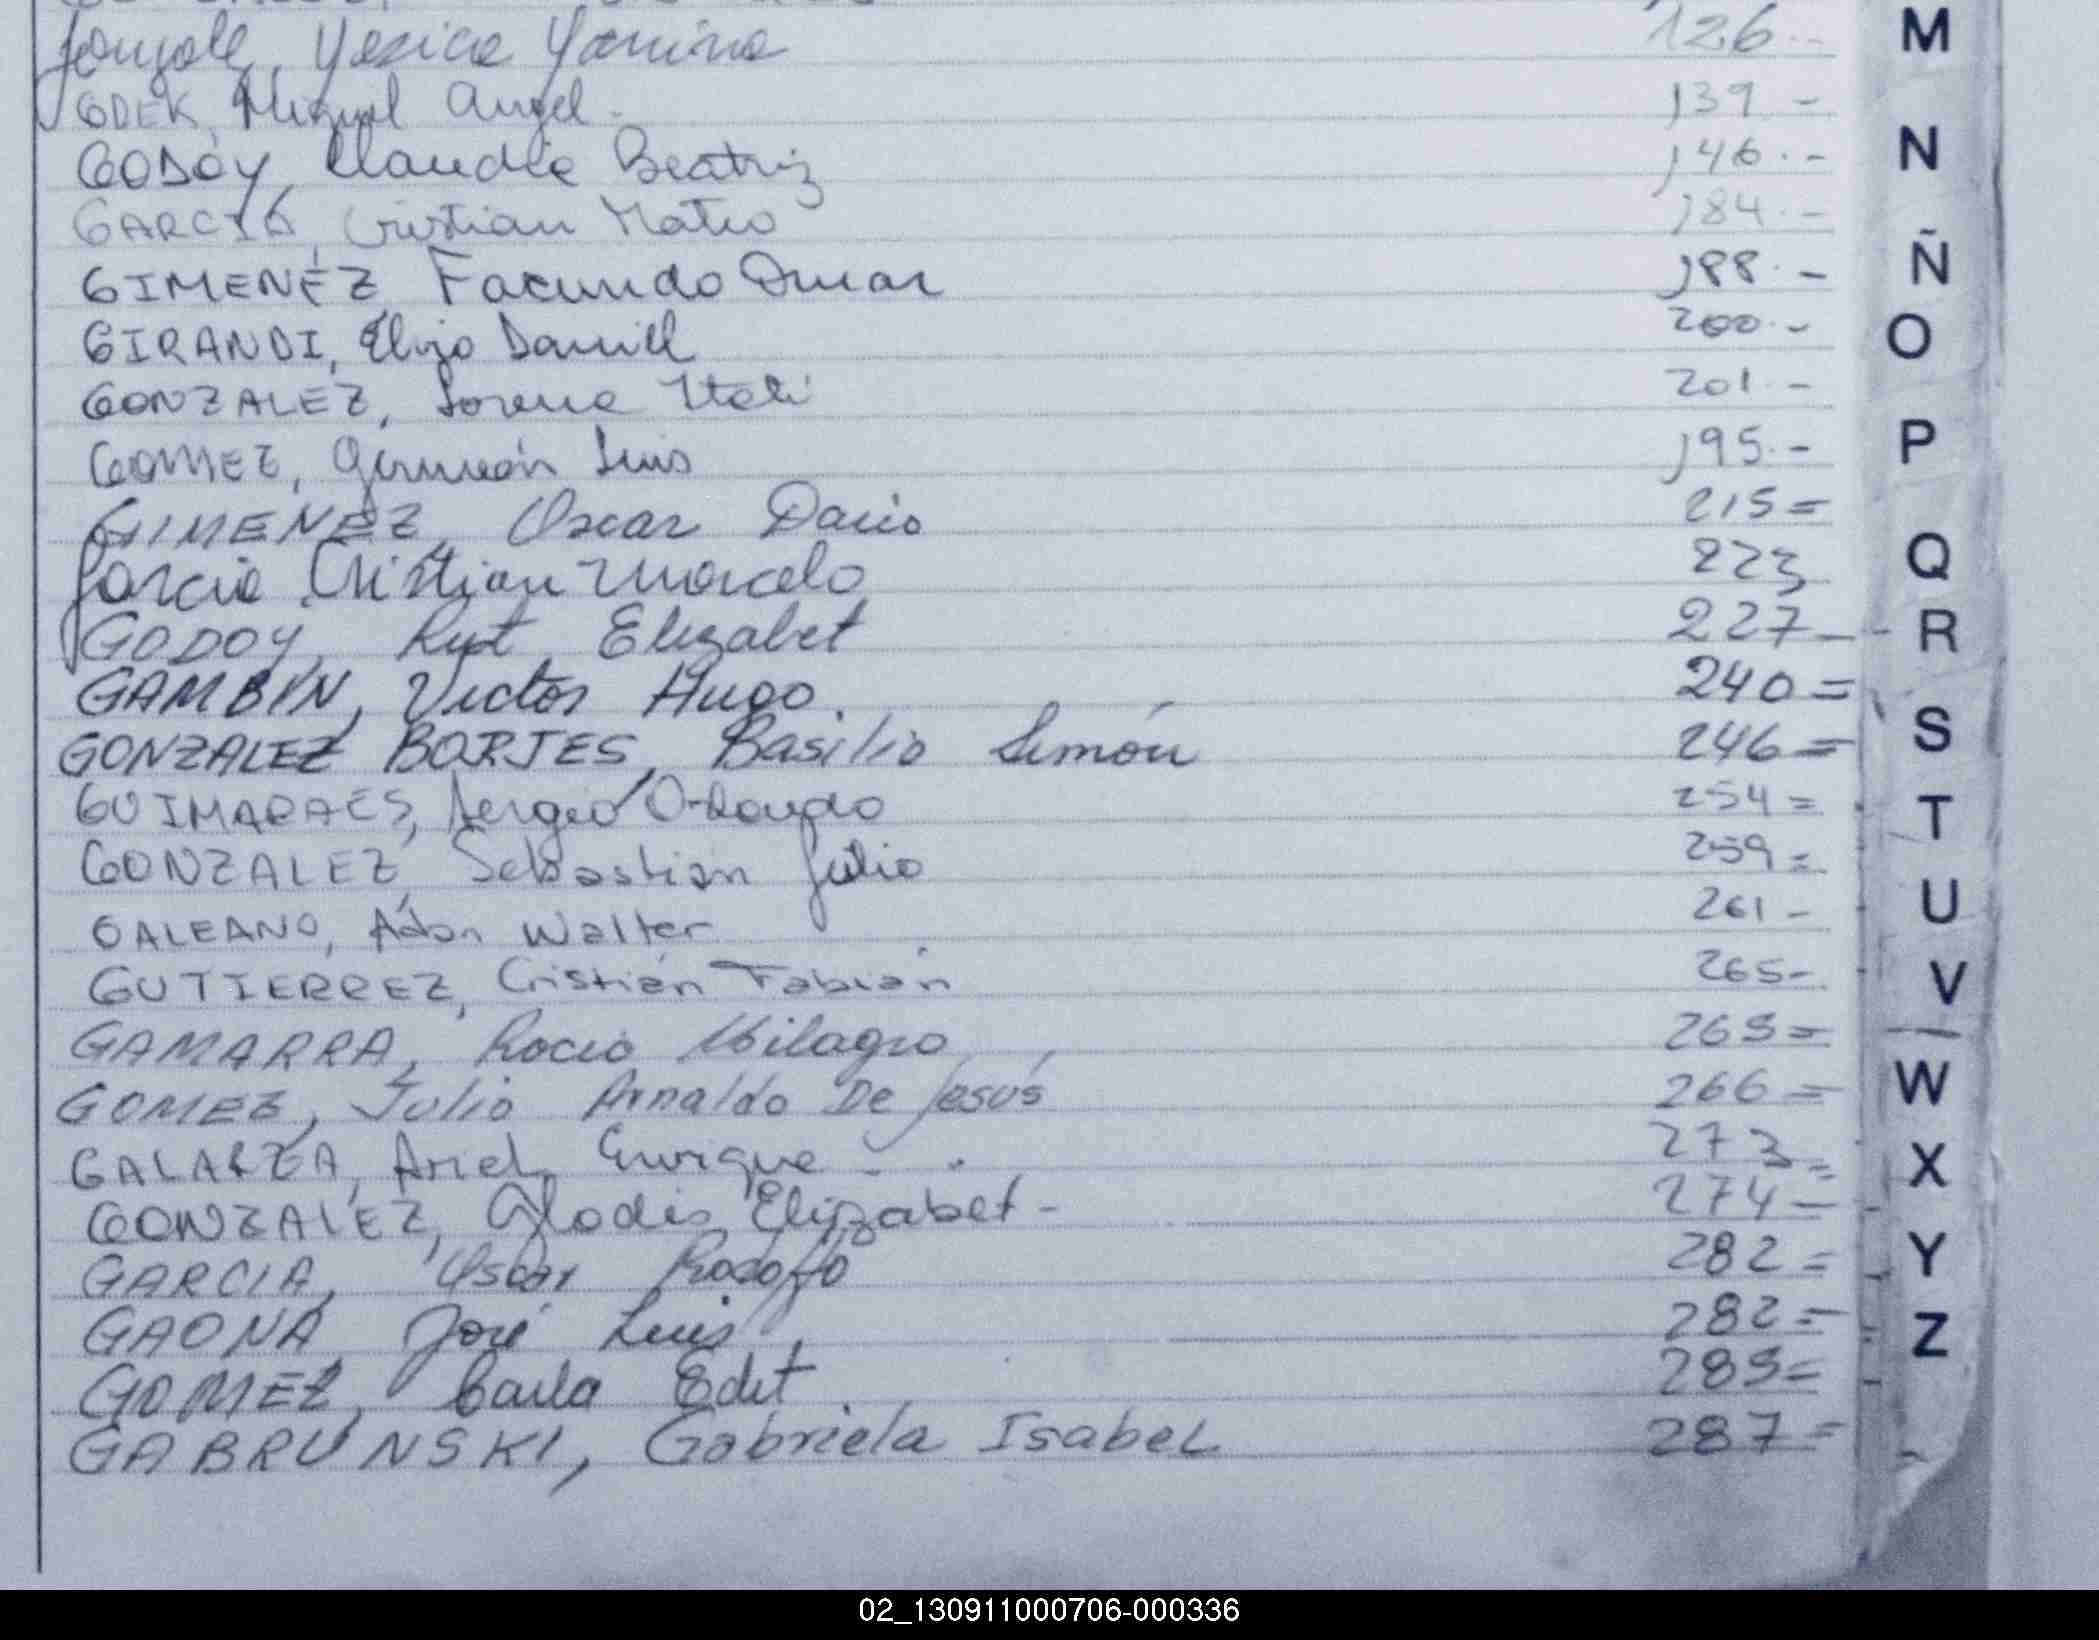 Gonzalez, Yesica Yanina 126.-
GDEK, Miguel Angel. 139-
GODOY, Claudia Beatriz 146.-
GARCIA, Cristian Mateo 184.-
GIMENEZ, Facundo Omar 188.-
GIRANDI, Eligo Daniel 200.-
GONZALEZ, Lorena Itati 201.-
GOMEZ, Germán Luis 195.-
GIMENEZ, Oscar Dario 215=
Garcia, Cristian Marcelo 223
GODOY, Rut Elizabet 227-
GAMBIN, Victor Hugo. 240=
GONZALEZ BORJES, Basilio Simón 246=
GUIMARAES, Sergio Orlando 254=
GONZALEZ, Sebastian Julio 259=
GALEANO, Adan Walter 261-
GUTIERREZ, Cristián Fabián 265-
GAMARRA, Rocio Milagro 265=
GOMEZ, Julio Arnaldo De Jesús 266=
GALARZA, Ariel Enrique - 273=
GONZALEZ, Gladis Elizabet- 274=
GARCIA, Oscar Rodolfo 282=
GAONA, José Luis, 282=
GOMEZ, Carla Edit. 285=
GABRUNSKI, Gabriela Isabel 287=
M
N
Ñ
O
P
Q
R
S
T
U
V
W
X
Y
Z
02_130911000706-000336